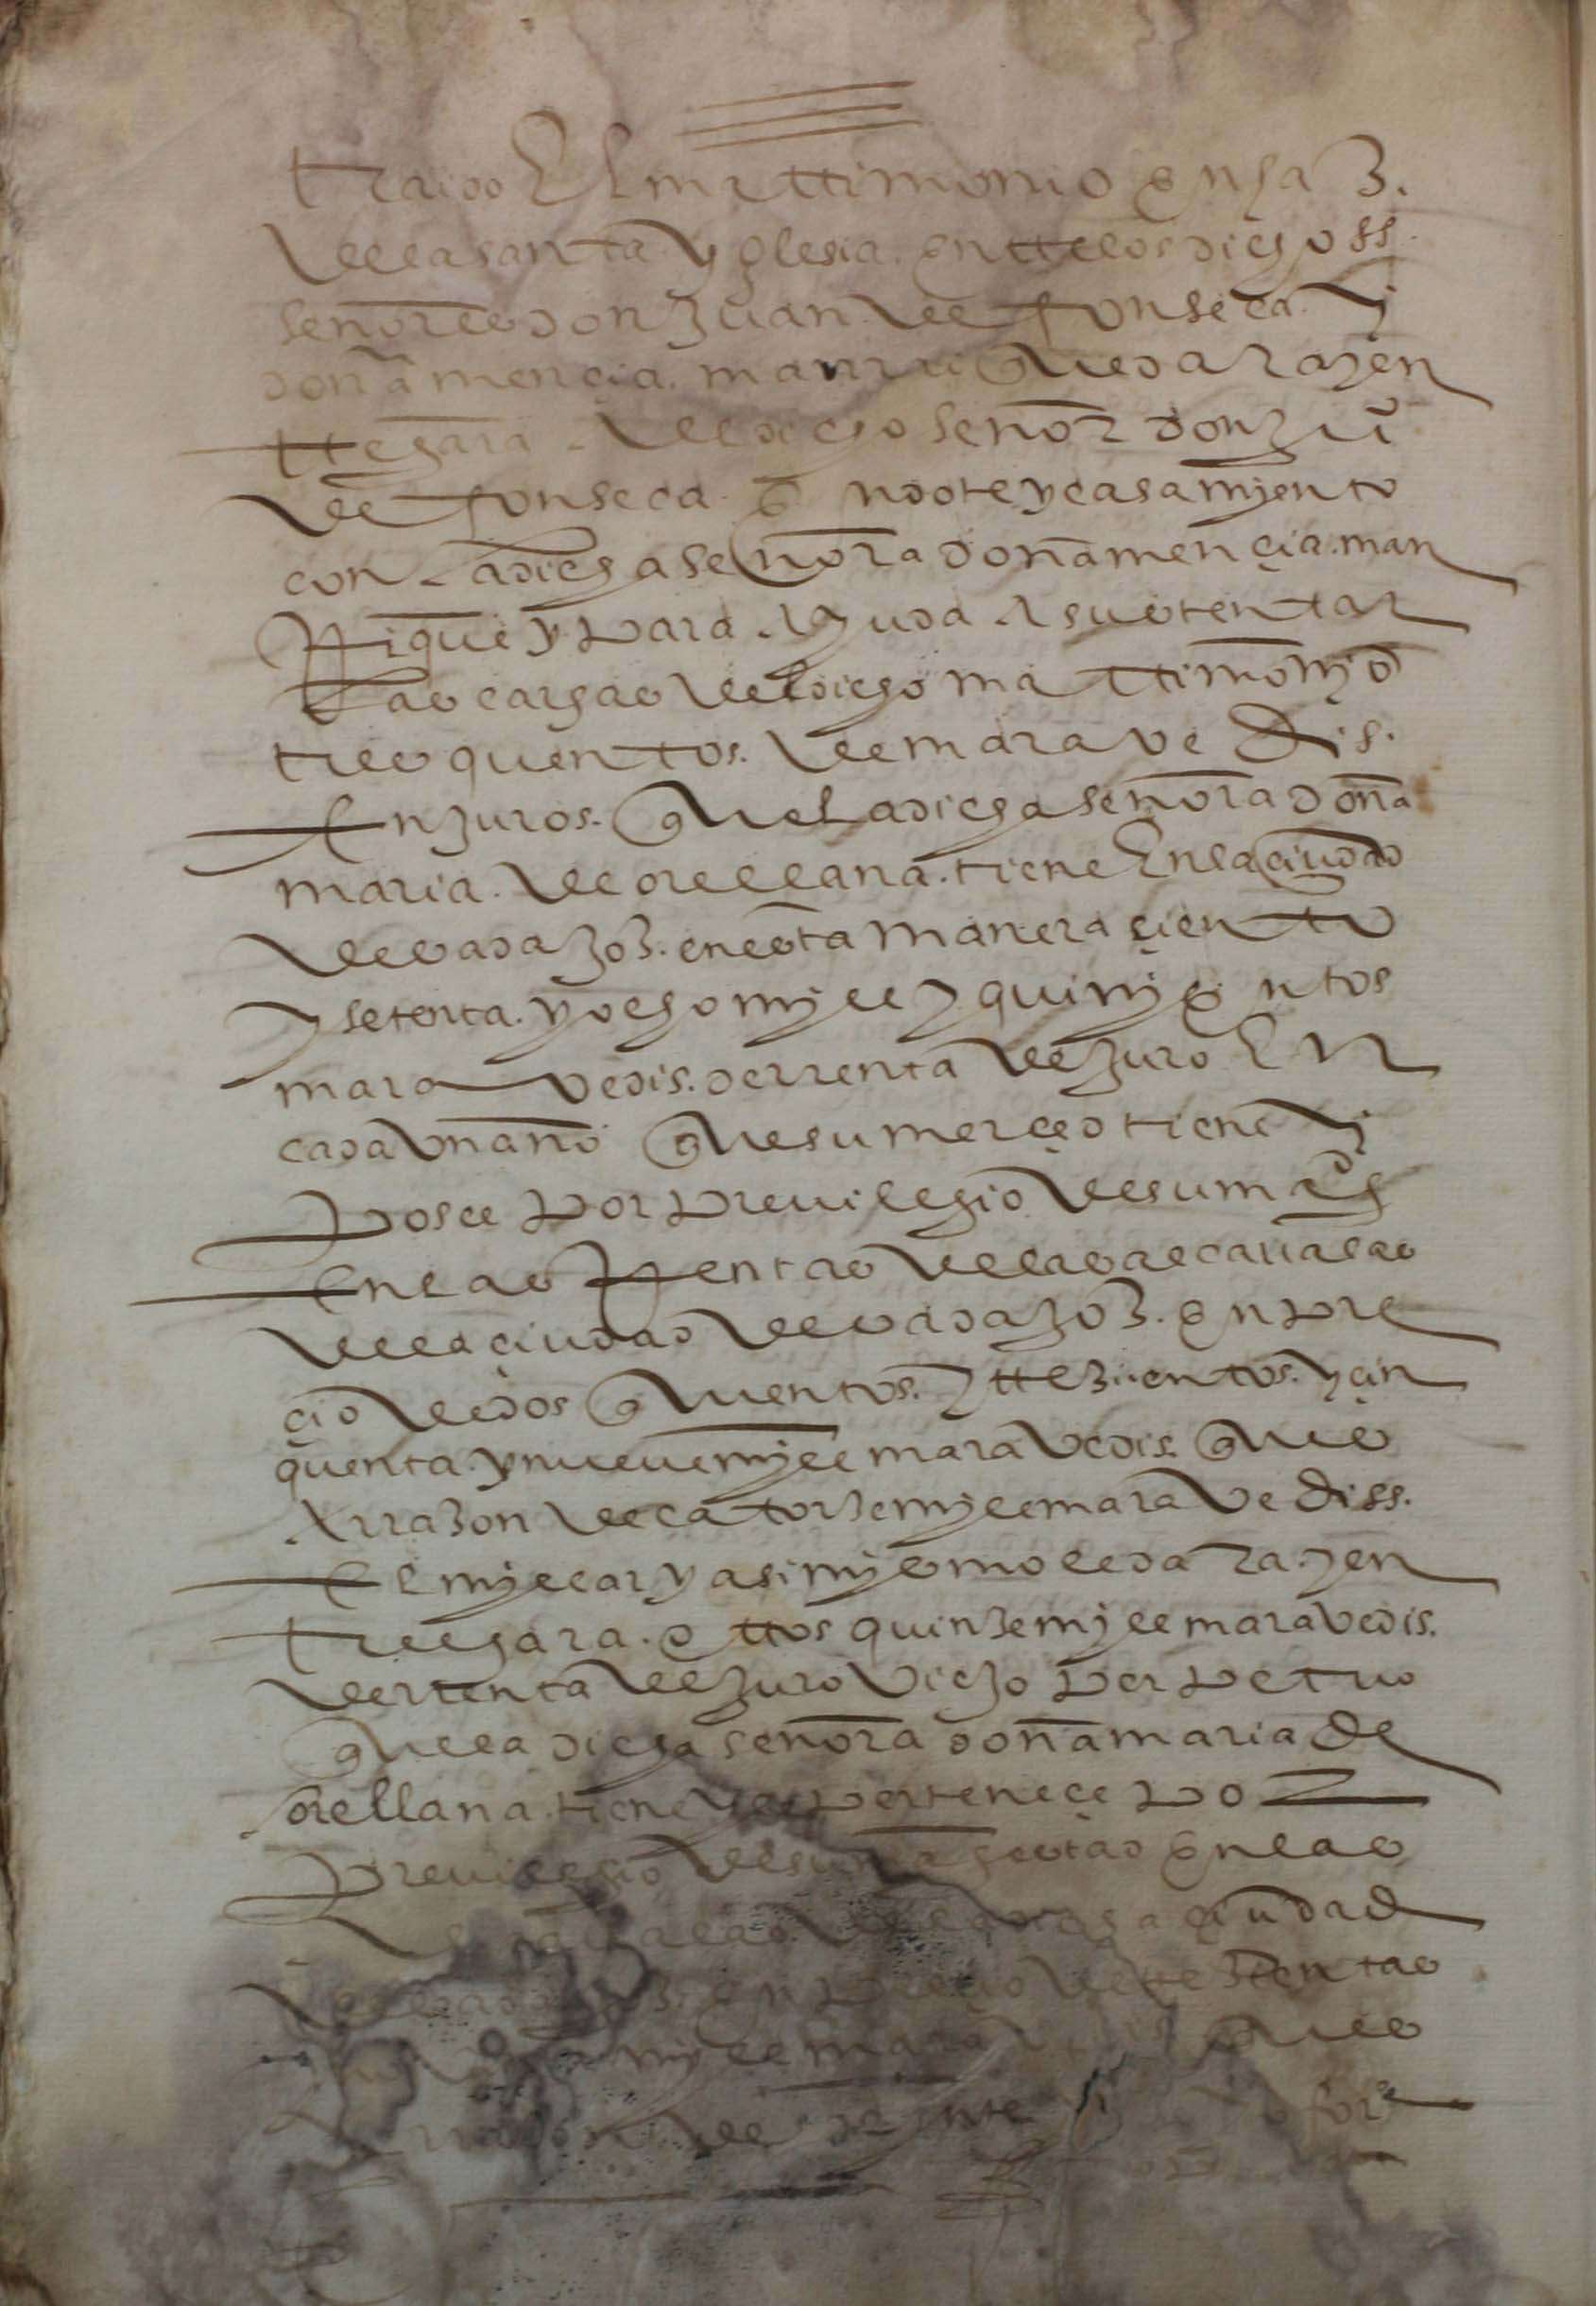 traido El matrimonio en haz.
de la santa yglesia. entre los dichos ss.
señores don Juan de fonseca y
doña mençia. manrrique dara y en
tregara. al dicho señor don Juº
de fonseca en dote y casamjento
con la dicha señora doña mençia. man
Rique y para Ayuda A sustentar
las cargas del dicho matrimonjo
tres quentos. de marauedis.
En Juros. que la dicha señora doña
maria. de orellana. tiene En la çiudad
de badajoz. en esta manera çiento
y setenta. y ocho mjll y quinjentos
marauedis. de rrenta de Juro En
cada vn año que su merçed tiene y
posee por preuilegio de su magd
En las Rentas de las alcaualas
de la çiudad de badajoz. en pre
çio de dos quentos. y trezientos. y çin
quenta. y nueue mjll marauedis. que es
A rrazon de catorze mjll marauediss.
El mjllar y asimjsmo le dara. y en
tregara. otros quinze mjll marauedis.
de rrenta de Juro viejo perpetuo
que la dicha señora doña maria de
orellana. tiene y le perteneçe por
preuilegio de su magestad en las
alcaualas de la dicha çiudad
de badajoz. en preçio de trezientas
mjll marauedis que es
A rrazon de veynte